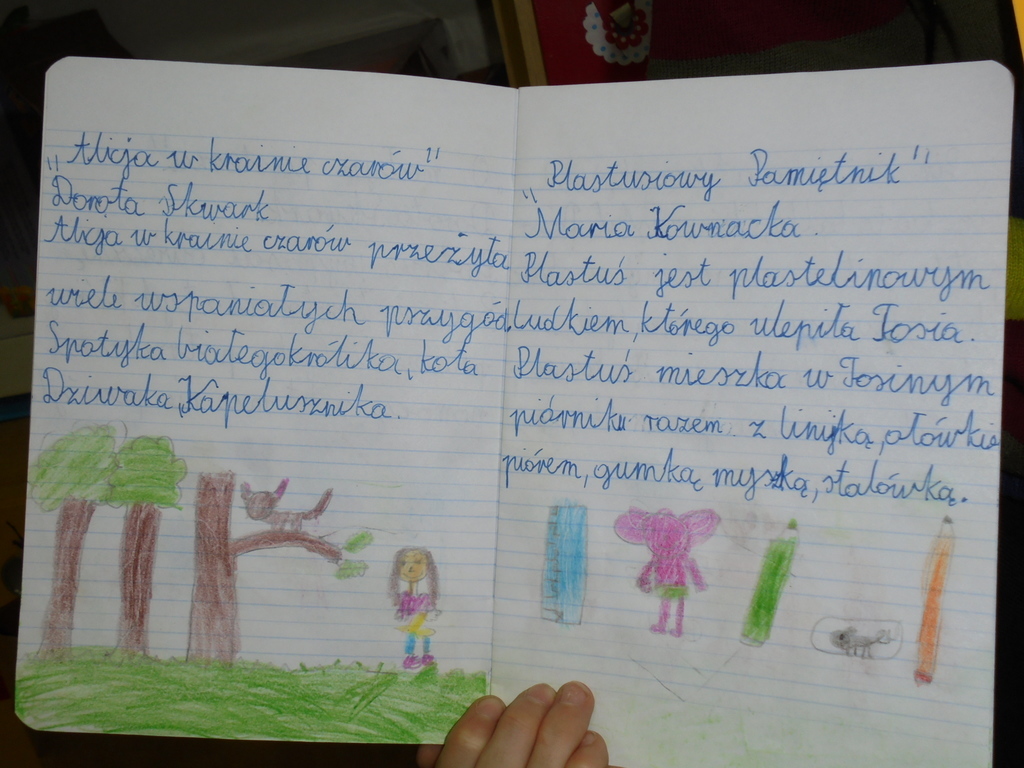 „Alicja w krainie czarów"
Dorota Skwark
Alicja w krainie czarów przeżyła
wiele wspaniałych przygód.
Spotyka białego królika, kota
Dziwaka, Kapelusznika.
„Plastusiowy Pamiętnik"
Maria Kownacka.
Plastuś jest plastelinowym
ludkiem, którego ulepiła Tosia.
Plastuś mieszka w Tosinym
piórniku razem z linijką, ołówkie
piórem, gumką myszką, stalówką.